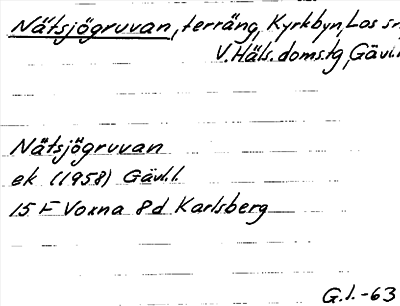 Nätsjögruvan, terräng, Kyrkbyn, Los sn,
V. Häls. doms.tg, Gävl.
Nätsjögruvan
ek (1958) Gävl.l.
15 F Voxna 8d Karlsberg
G.l.-63